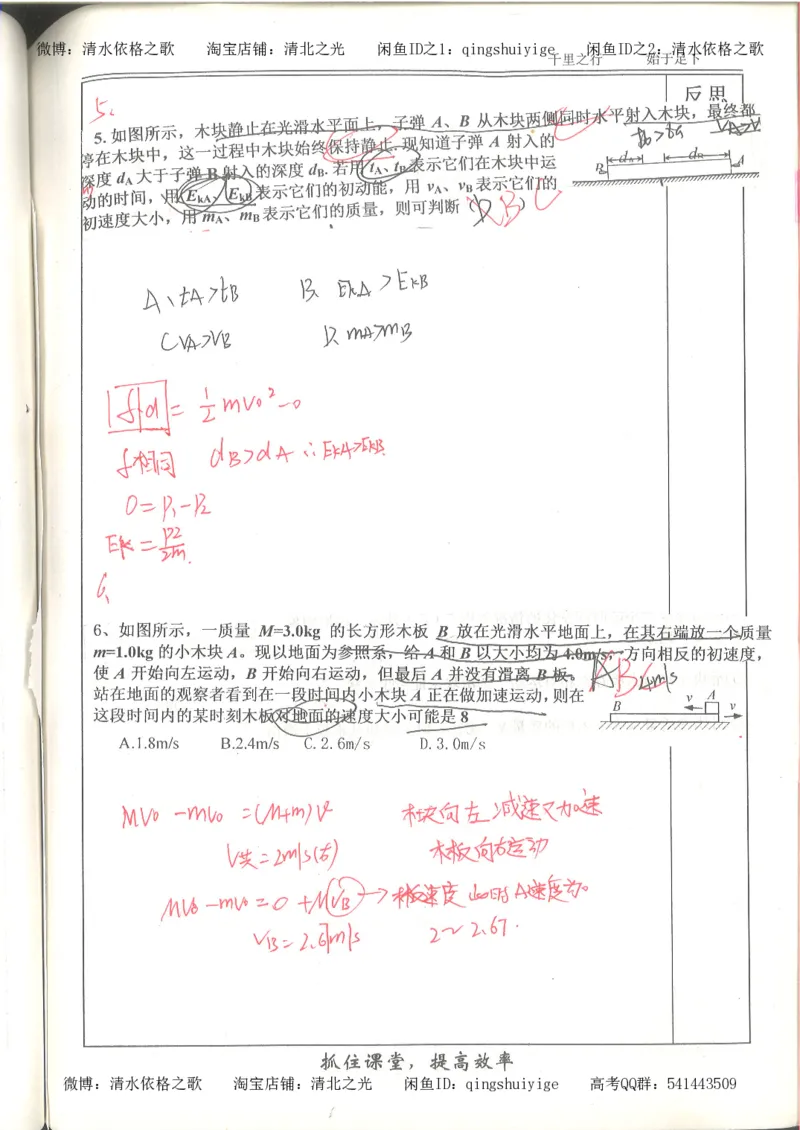 微博：清水依格之歌 淘宝店铺：清北之光 闲鱼ID之1：qingshuiyige 闲鱼ID之2：清水依格之歌
千里之行 始于足下
反思
5.
5. 如图所示，木块静止在光滑水平面上，子弹 A、B 从木块两侧同时水平射入木块，最终都
停在木块中，这一过程中木块始终保持静止.现知道子弹 A 射入的
深度 dA 大于子弹 B 射入的深度 dB. 若用 tA、tB 表示它们在木块中运
动的时间，用 EkA、EkB 表示它们的初动能，用 vA、vB 表示它们的
初速度大小，用 mA、mB 表示它们的质量，则可判断（ ）
tb>ta
B dA dB A
B C
A、tA>tB B. EkA>EkB
C vA>vB D. mA>mB
fd = 1/2 mv0² -0
f相同 dB>dA ∴EkA>EkB
0=P1-P2
Ek = P2/2m.
6、
6、如图所示，一质量 M=3.0kg 的长方形木板 B 放在光滑水平地面上，在其右端放一个质量
m=1.0kg 的小木块 A。现以地面为参照系，给 A 和 B 以大小均为 4.0m/s，方向相反的初速度，
使 A 开始向左运动，B 开始向右运动，但最后 A 并没有滑离 B 板。
站在地面的观察者看到在一段时间内小木块 A 正在做加速运动，则在
这段时间内的某时刻木板对地面的速度大小可能是 8
B v A v
A.1.8m/s B.2.4m/s C.2.6m/s D.3.0m/s
Mv0 -mv0 =(M+m)v 木块向左减速又加速
v共=2m/s(右) 木板向右运动
Mv0 -mv0 =0 +MvB → 木板速度 此时A速度为0
vB=2.67m/s 2~2.67.
抓住课堂，提高效率
微博：清水依格之歌 淘宝店铺：清北之光 闲鱼ID：qingshuiyige 高考QQ群：541443509